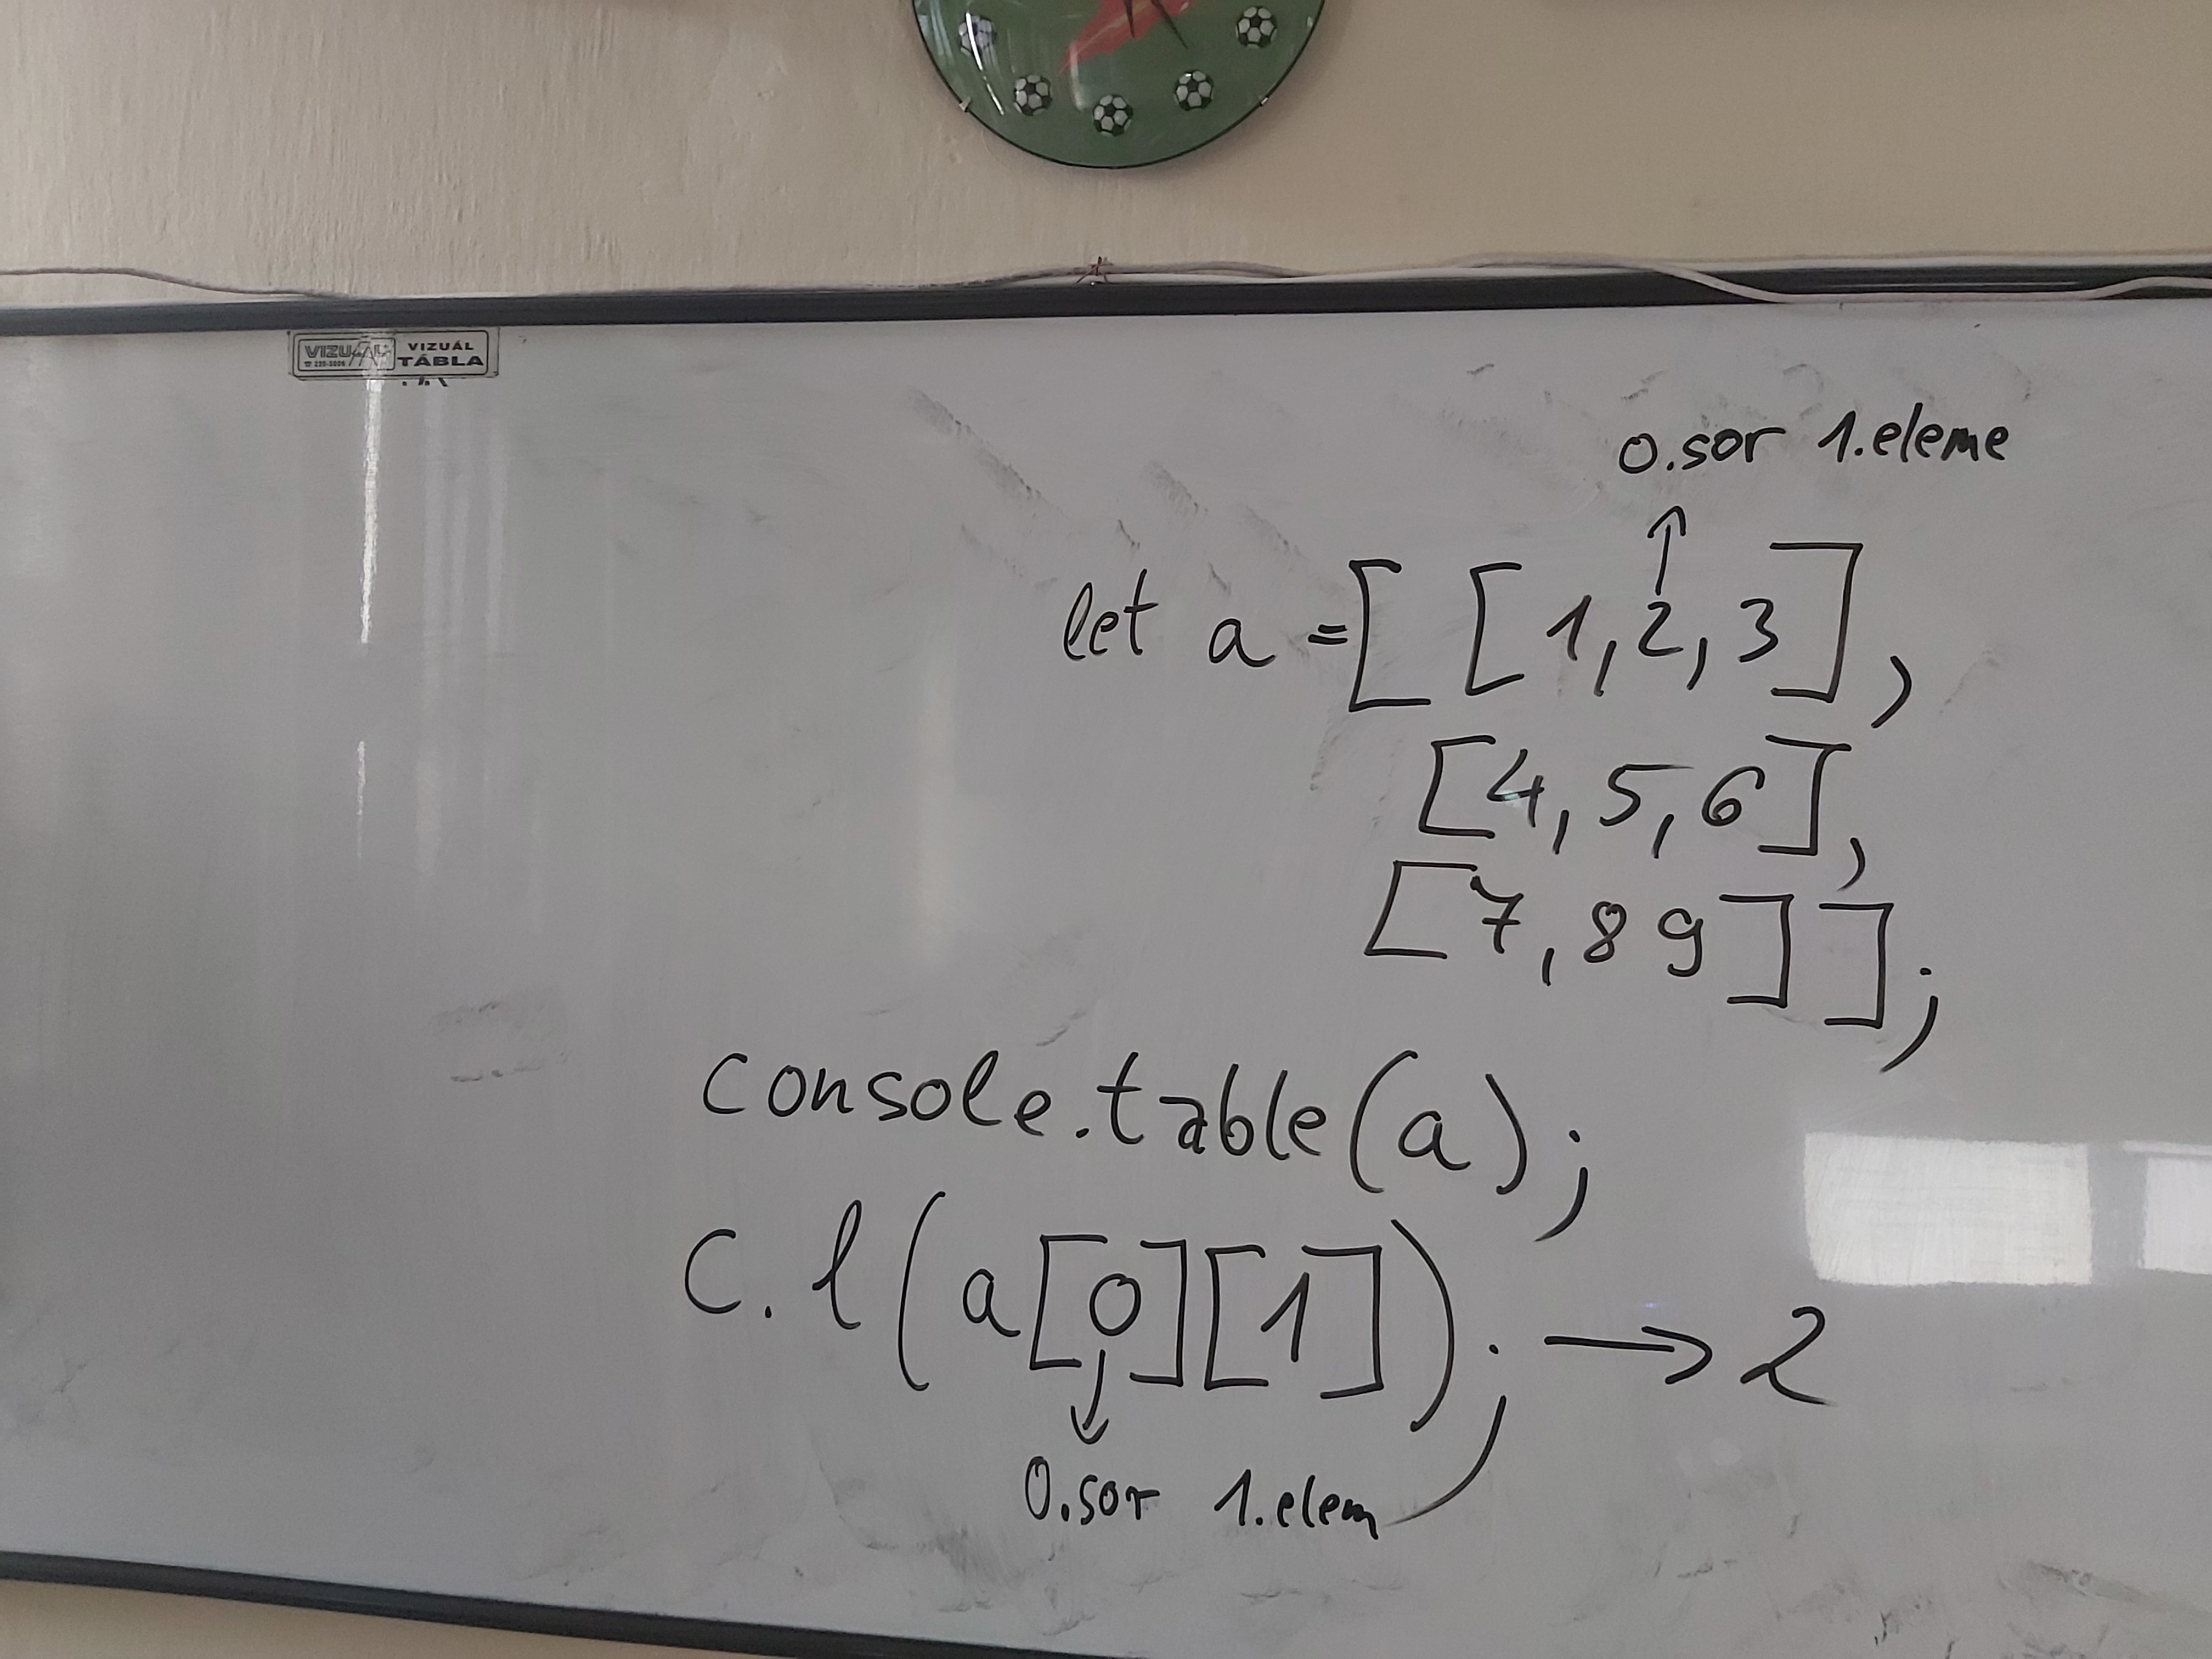 VIZUÁL
VIZUÁL
TÁBLA
0.sor 1.eleme
let a = [ [1,2,3],
[4,5,6],
[7,8 9] ];
console.table(a);
c.l(a[0][1]); → 2
0.sor 1.elem